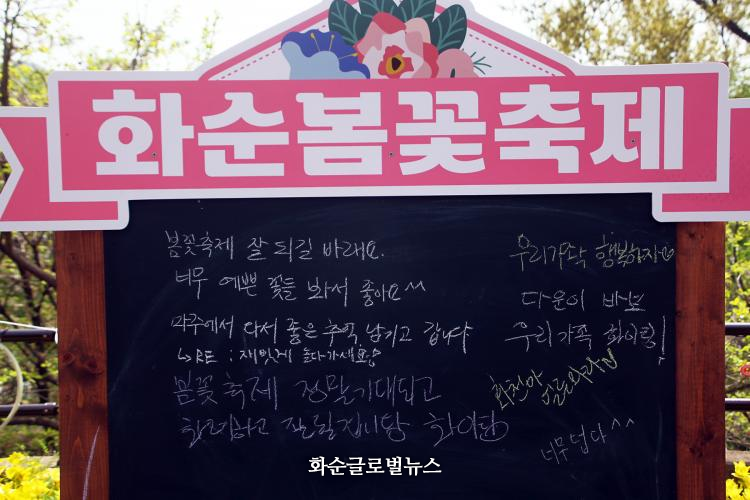 화순봄꽃축제
봄꽃축제 잘 되길 바래요.
너무 예쁜 꽃들 봐서 좋아요^^
좋은 추억 남기고 갑니다
↳RE : 재밌게 놀다가세요
봄꽃축제 정말기대되고
우리가족 행복하자
다운이 바보
우리 가족 화이팅!
너무 덥다^^
화순글로벌뉴스